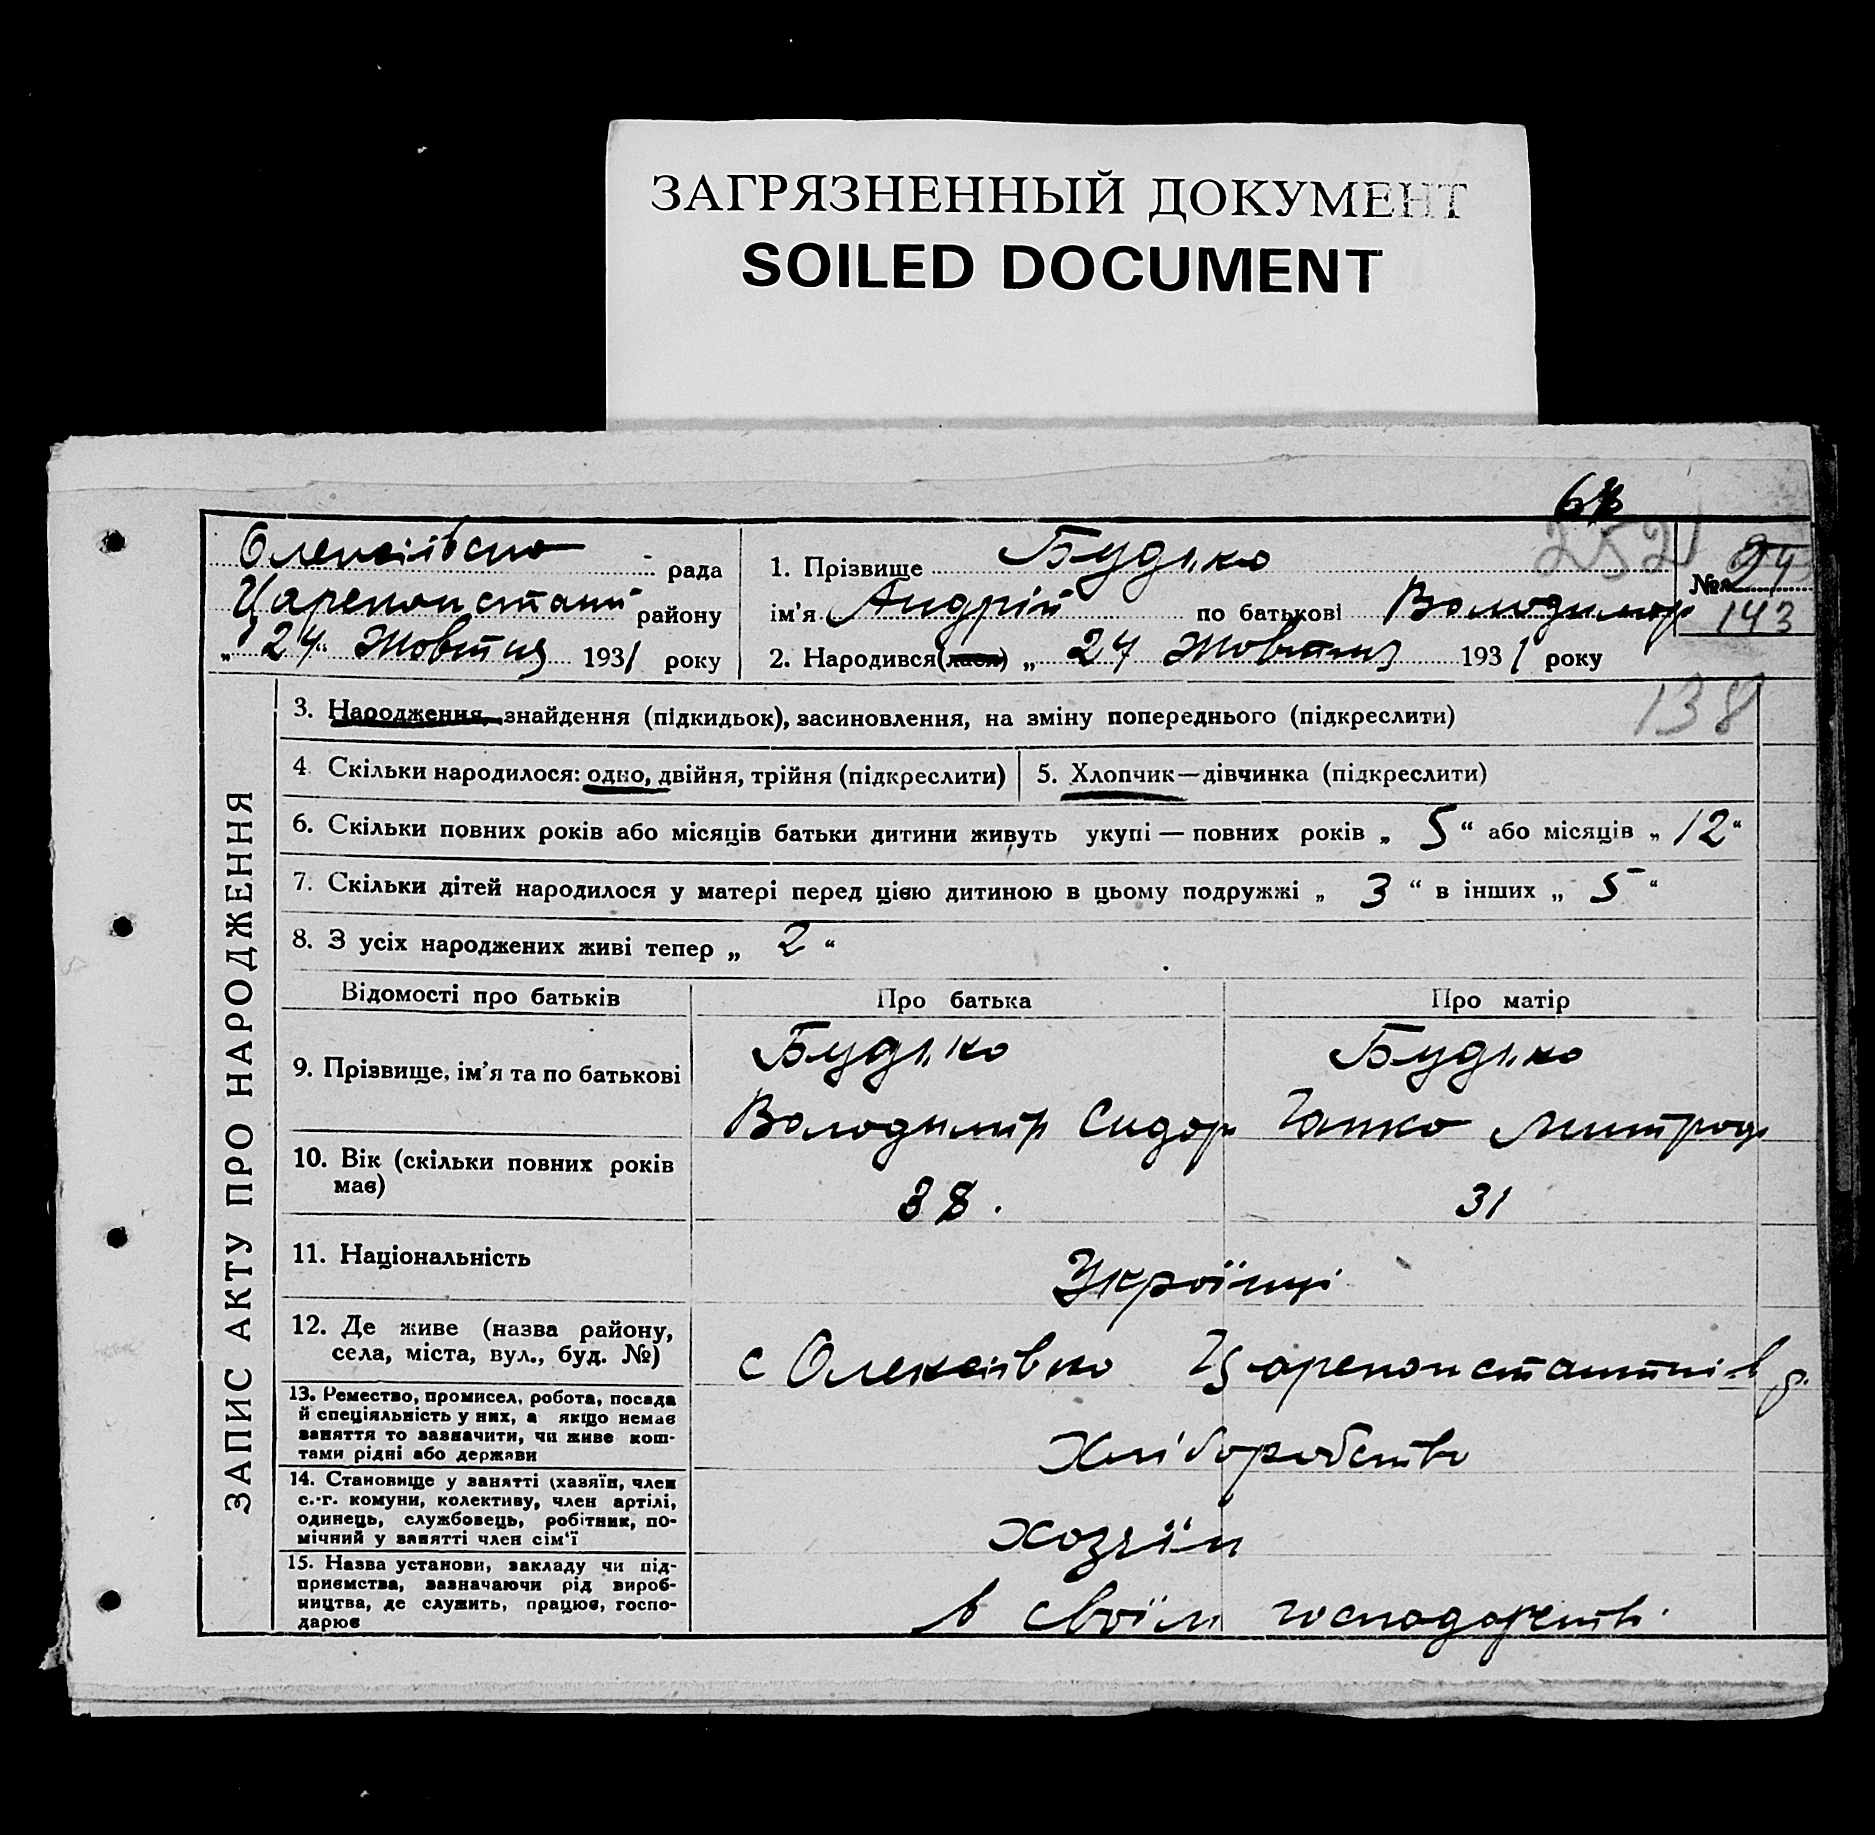 ЗАГРЯЗНЕННЫЙ ДОКУМЕНТ
SOILED DOCUMENT
252
Олексіївска рада
Цареконстант району
„ 24 “ Жовтня 1931 року
1. Прізвище Будько
ім’я Андрій по батькові Володимир
2. Народився(лася) „ 24 Жовтня 1931 року
№
143
138
ЗАПИС АКТУ ПРО НАРОДЖЕННЯ
3. Народження, знайдення (підкидьок), засиновлення, на зміну попереднього (підкреслити)
4. Скільки народилося: одно, двійня, трійня (підкреслити)
5. Хлопчик—дівчинка (підкреслити)
6. Скільки повних років або місяців батьки дитини живуть укупі — повних років „ 5 “ або місяців „ 12 “
7. Скільки дітей народилося у матері перед цією дитиною в цьому подружжі „ 3 “ в інших „ 5 “
8. З усіх народжених живі тепер „ 2 “
Відомості про батьків
Про батька
Про матір
9. Прізвище, ім’я та по батькові
Будько
Володимір Сидор
Будько
Ганко Митроф
10. Вік (скільки повних років
має)
38.
31
11. Національність
Українці
12. Де живе (назва району,
села, міста, вул., буд. №)
с Олексіївко Цареконстантинів р.
13. Ремество, промисел, робота, посада
й спеціяльність у них, а якщо немає
заняття то зазначити, чи живе кош-
тами рідні або держави
Хліборобство
14. Становище у занятті (хазяїн, член
с.-г. комуни, колективу, член артілі,
одинець, службовець, робітник, по-
мічний у занятті член сім‘ї
хозяїн
15. Назва установи, закладу чи під-
приємства, зазначаючи рід вироб-
ництва, де служить, працює, госпо-
дарює
в своїм господарстві.